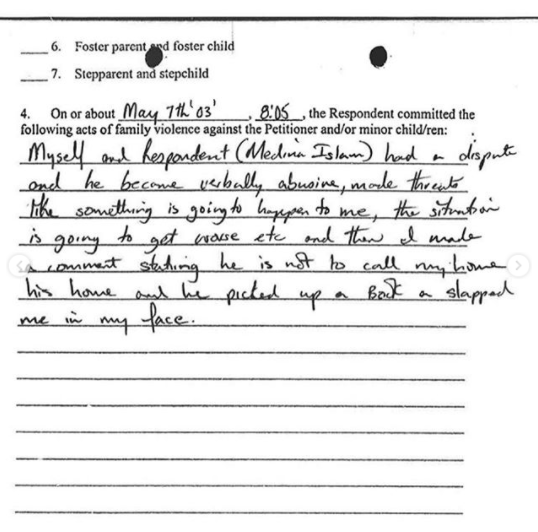 ____ 6. Foster parent and foster child
____ 7. Stepparent and stepchild
4. On or about May 7th' 03' , 8:05 , the Respondent committed the
following acts of family violence against the Petitioner and/or minor child/ren:
Myself and Respondent (Medina Islam) had a dispute
and he become verbally abusive, made threats
like something is going to happen to me, the situation
is going to get worse etc and then I made
a comment stating he is not to call my home
his home and he picked up a Book a slapped
me in my face.